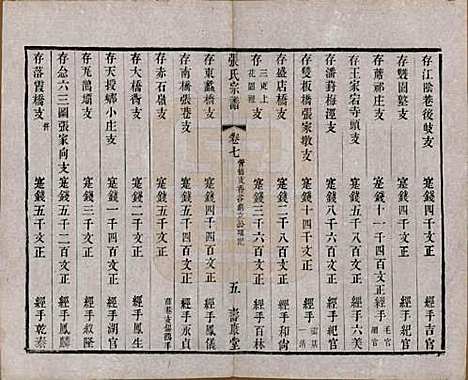 存江陰巷後歧支 筵錢四千文正 經手吉官
存雙園整支 筵錢四千文正 經手紀官
存蘆祁庄支 筵錢十一千四百文正 經手
存王家宕寺頭支 筵錢五千文正 經手六美
存潘葑梅涇支 筵錢八千六百文正 經手紀官
存雙板橋張家墩支 筵錢十四千文正 經手
存盛店橋支 筵錢二千八百文正 經手和尚
存 筵錢三千六百文正 經手百林
張氏宗譜 卷七 五 壽康堂
存東蠡橋支 筵錢四千四百文正 經手鳳
存南橋張巷支 筵錢四千文正 經手永貞
存赤石嶺支 筵錢二千四百文正
存大橋衖支 筵錢五千文正 經手鳳生
存天授鄉小庄支 筵錢一千四百文正 經手湖官
存瓦瀰壩支 筵錢四千文正 經手叙隆
存厽六三圖張家向支 筵錢五千二百文正 經手鳳麟
存落霞橋支 筵錢五千文正 經手乾泰